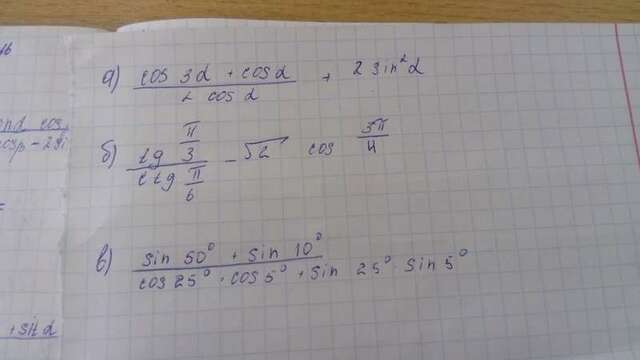 а) cos 3α + cos α / 2 cos α + 2 sin² α
б) tg π/3 / ctg π/6 - √2 cos 3π/4
в) sin 50° + sin 10° / cos 25° · cos 5° + sin 25° · sin 5°
+ sin α